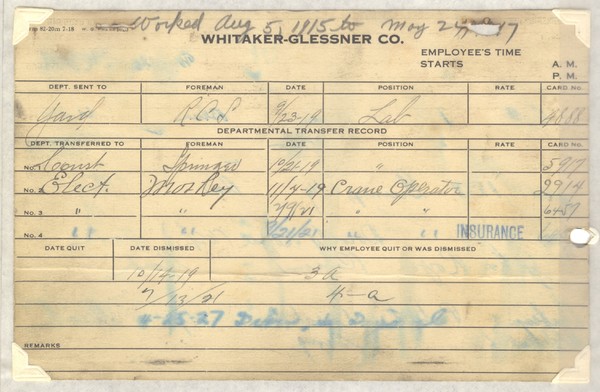 Worked Aug 5, 1915 to May 24, 1917
WHITAKER-GLESSNER CO.
EMPLOYEE'S TIME
STARTS
A. M.
P. M.
DEPT. SENT TO FOREMAN DATE POSITION RATE CARD NO.
Yard R.C.S. 9/23-19 Lab 4888
DEPARTMENTAL TRANSFER RECORD
DEPT. TRANSFERRED TO FOREMAN DATE POSITION RATE CARD NO.
No. 1 10/21-19 " 5917
No. 2 Elect. 11/4-19 Crane Operator 2914
No. 3 " " " " 6457
No. 4 " " " " INSURANCE
DATE QUIT DATE DISMISSED WHY EMPLOYEE QUIT OR WAS DISMISSED
10/14-19 3a
7/13/21 4-a
4-25-27
REMARKS